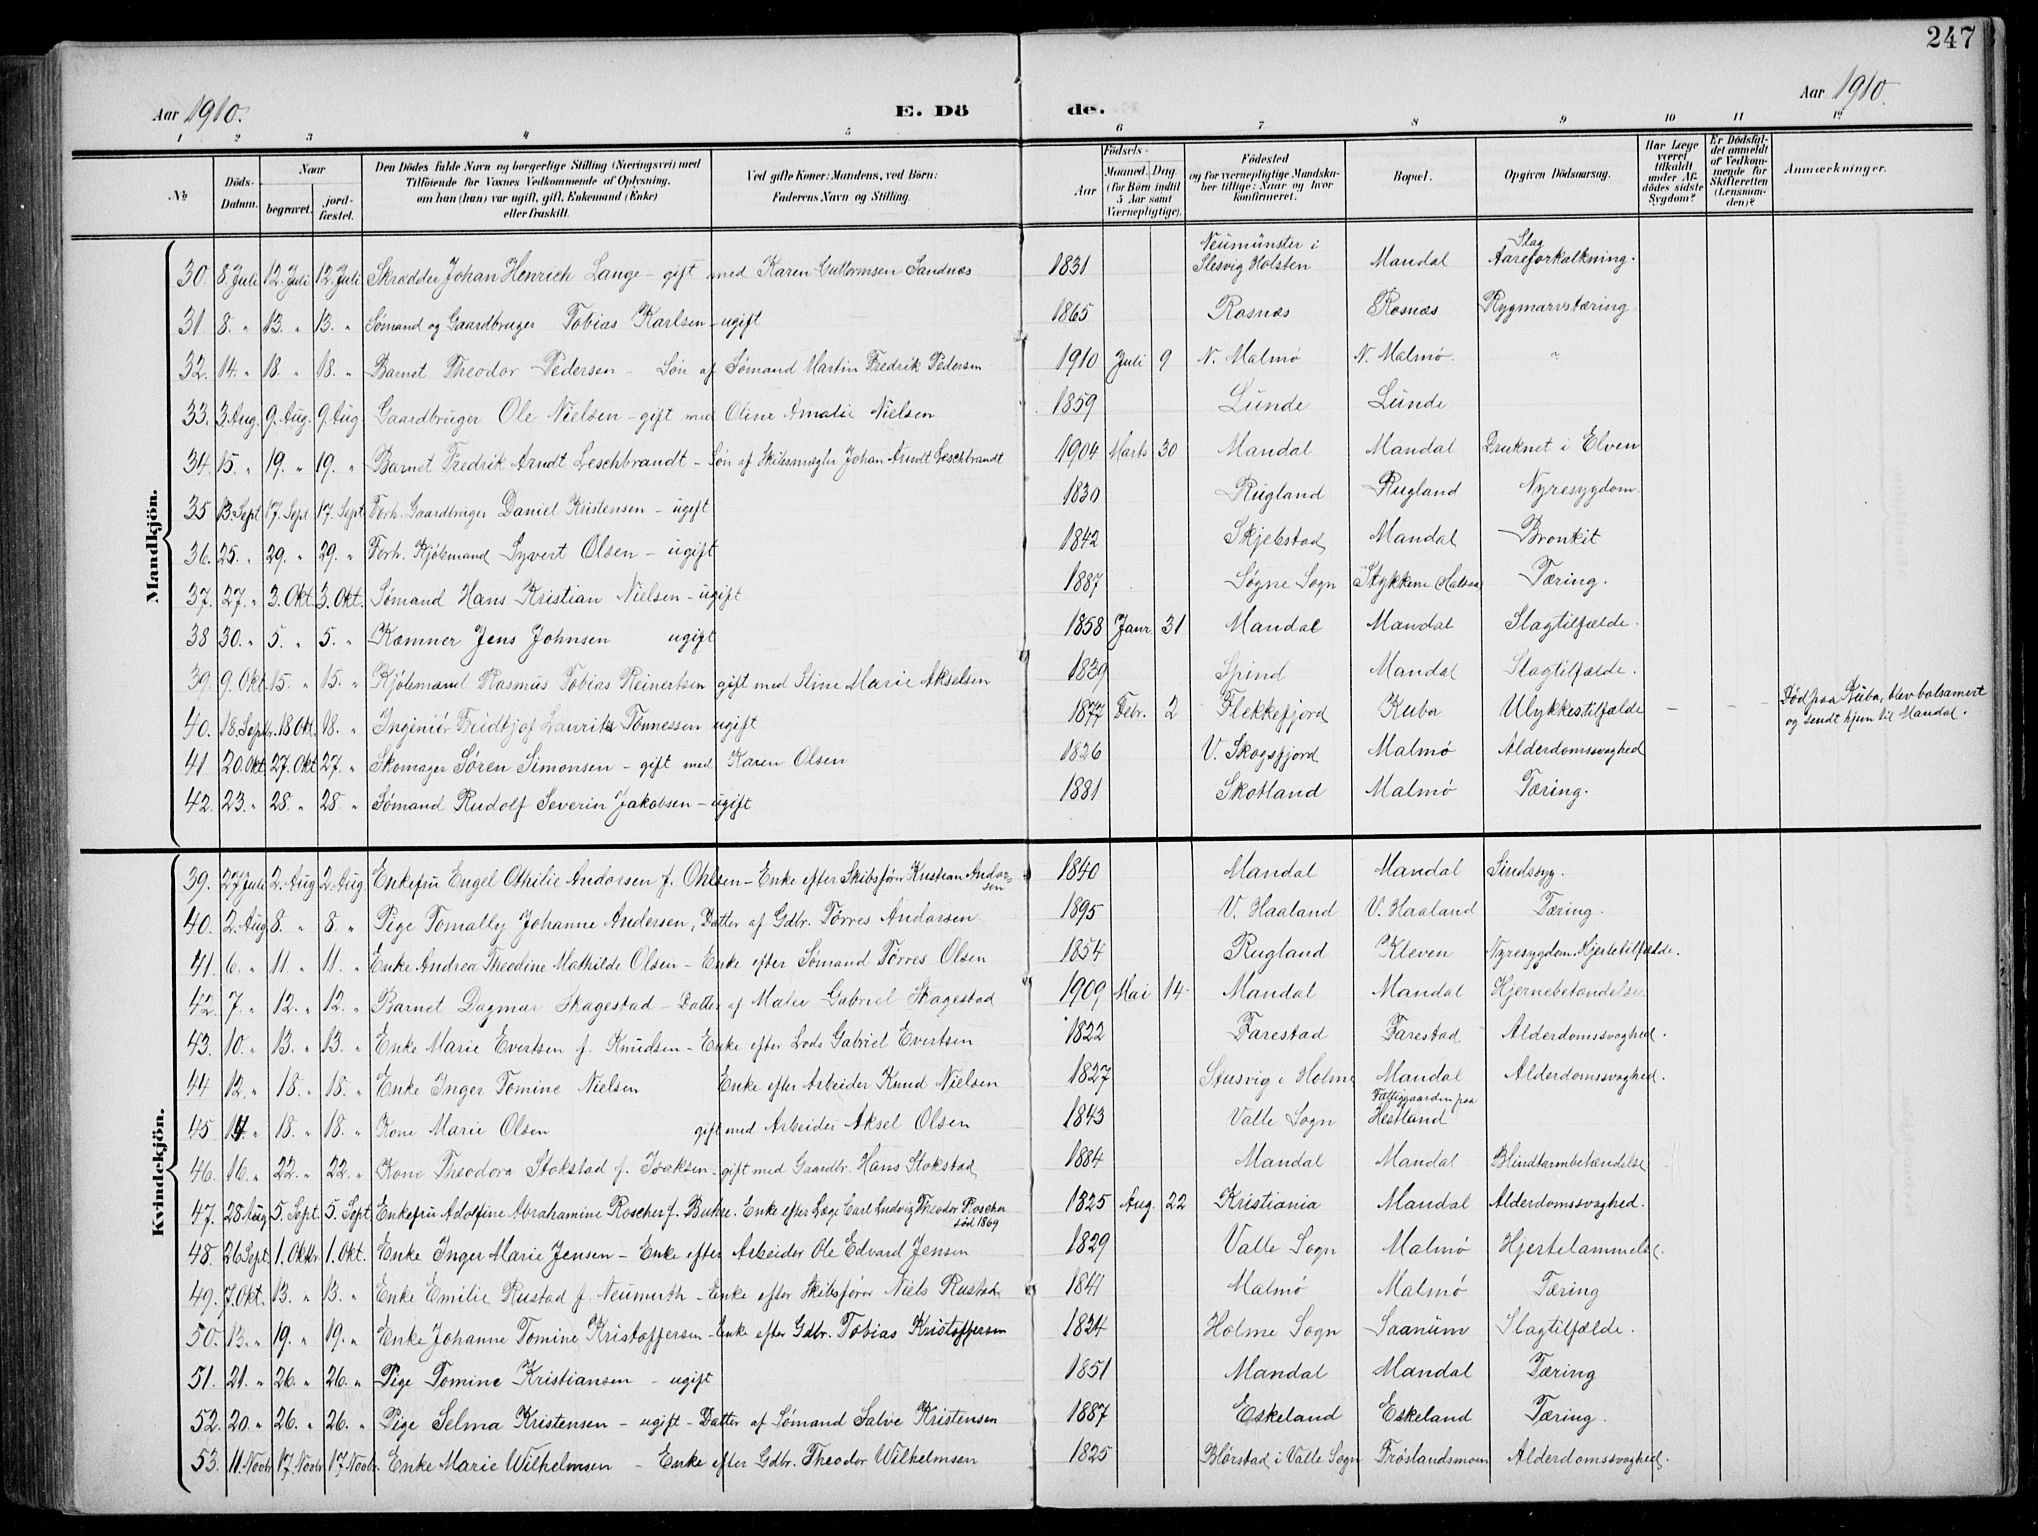 247
Aar 1910. E. Dö de. Aar 1910.
1 2 3 4 5 6 7 8 9 10 11 12
No
Döds-Datum.
Naar
begravet.
jord-fæstet.
Den Dödes fulde Navn og borgerlige Stilling (Næringsvei) med
Tilföiende for Voxnes Vedkommende af Oplysning,
om han (hun) var ugift, gift, Enkemand (Enke)
eller fraskilt.
Ved gifte Koner: Mandens, ved Börn:
Faderens Navn og Stilling.
Födsels-
Aar
Maaned. Dag.
(for Börn indtil
5 Aar samt
Værnepligtige).
Födested
og for værnepligtige Mandska-
ber tillige: Naar og hvor
konfirmeret.
Bopæl.
Opgiven Dödsaarsag.
Har Læge
været
tilkaldt
under Af-
dödes sidste
Sygdom?
Er Dödsfal-
det anmeldt
af Vedkom-
mende for
Skifteretten
(Lensman-
den)?
Anmærkninger.
Mandkjön.
30. 8. Juli 12. Juli 12. Juli Skrædder Johan Henrich Lange - gift med Karen Guttormsen Sandnæs 1831 Neumünster i Slesvig Holsten Mandal Slag Aareforkalkning.
31 8. " 13. " 13. " Sømand og Gaardbruger Tobias Karlsen - ugift 1865 Rosnæs Rosnæs Rygmarvstæring
32. 14. " 18. " 18. " Barnet Theodor Pedersen - Søn af Sømand Martin Fredrik Pedersen 1910 Juli 9 N. Malmø N. Malmø. "
33. 3. Aug. 9. Aug. 9. Aug Gaardbruger Ole Nielsen - gift med Oline Amalie Nielsen 1859 Lunde Lunde
34. 15. " 19. " 19. " Barnet Fredrik Arndt Leschbrandt - Søn af Skibsmægler Johan Arndt Leschbrandt 1904 Marts 30 Mandal Mandal Druknet i Elven
35 13. Sept 17. Sept 17. Sept Forh. Gaardbruger Daniel Kristensen - ugift 1830 Rugland Rugland Nyresygdom.
36. 25. " 29. " 29. " Forh. Kjøbmand Syvert Olsen - ugift 1842 Skjebstad Mandal Bronkit
37. 27. " 3. Okt. 3. Okt. Sømand Hans Kristian Nielsen - ugift 1887 Søgne Sogn Stykkene (Halsaa) Tæring.
38 30. " 5. " 5. " Kæmner Jens Johnsen ugift 1858 Janr. 31 Mandal Mandal Slagtilfælde.
39. 9. Okt. 15. " 15. " Kjøbmand Rasmus Tobias Reinertsen gift med Stine Marie Akselsen 1839 Spind Mandal Slagtilfælde.
40. 18. Septbr. 18 Okt. 18. " Ingeniør Fridtjof Lauritz Tønnessen ugift 1877 Febr. 2 Flekkefjord Kuba Ulykkestilfælde - - Død paa Kuba, blev balsamert og sendt hjem til Mandal.
41 20. Okt 27. Okt 27. " Skomager Søren Simonsen - gift med Karen Olsen 1826 V. Skogsfjord Malmø Alderdomssvaghed
42. 23. " 28. " 28. " Sømand Rudolf Severin Jakobsen - ugift 1881 Skotland Malmø Tæring.
Kvindekjön.
39. 27 Juli 2. Aug 2. Aug Enkefru Engel Othilie Andorsen f. Ohlsen - Enke efter Skibsfører Kristian Andorsen 1840 Mandal Mandal Sindssyg.
40. 2. Aug 8. " 8. " Pige Tomally Johanne Andersen, Datter af Gdbr. Tørres Andorsen 1895 V. Haaland V. Haaland Tæring.
41. 6. " 11. " 11. " Enke Andrea Theodine Mathilde Olsen - Enke efter Sømand Tørres Olsen 1854 Rugland Kleven Nyresygdom. Hjertetilfælde.
42. 7. " 12. " 12. " Barnet Dagmar Skagestad - Datter af Maler Gabriel Skagestad 1909 Mai 14 Mandal Mandal Hjernebetændelse.
43. 10. " 13. " 13. " Enke Marie Evertsen f. Knudsen - Enke efter Lods Gabriel Evertsen 1822 Farestad Farestad Alderdomssvaghed.
44 12. " 18. " 18. " Enke Inger Tomine Nielsen Enke efter Arbeider Knud Nielsen 1827 Stusvig i Holme Mandal Alderdomssvaghed.
45. 14. " 18. " 18. " Kone Marie Olsen gift med Arbeider Aksel Olsen 1843 Valle Sogn Fattiggaarden paa Hestland
46. 16. " 22. " 22. " Kone Theodora Stokstad f. Isaksen - gift med Gaardbr. Hans Stokstad 1884 Mandal Mandal Blindtarmbetændelse
47. 28 Aug 5. Sept. 5. Sept Enkefru Adolfine Abrahamine Roscher f. Buhre. Enke efter Læge Carl Ludvig Theodor Roscher død 1869 1825 Aug. 22 Kristiania Mandal Alderdomssvaghed.
48. 26 Sept. 1. Oktbr 1. Okt. Enke Inger Marie Jensen - Enke efter Arbeider Ole Edvard Jensen 1829 Valle Sogn Malmø Hjertelammelse.
49. 7. Okt. 13. " 13. " Enke Emilie Rustad f. Neumerth - Enke efter Skibsfører Niels Rustad 1841 Malmø Malmø Tæring
50. 13. " 19. " 19. " Enke Johanne Tomine Kristoffersen - Enke efter Gdbr. Tobias Kristoffersen 1824 Holme Sogn Saanum Slagtilfælde.
51. 21. " 26. " 26. " Pige Tomine Kristiansen - ugift 1851 Mandal Mandal Tæring
52. 20. " 26. " 26. " Pige Selma Kristensen - ugift - Datter af Sømand Salve Kristensen 1887 Eskeland Eskeland Tæring.
53. 11. Novbr 17. Novbr 17 Novbr. Enke Marie Wilhelmsen - Enke efter Gdbr. Theodor Wilhelmsen 1825 Blørstad i Valle Sogn Frøslandsmoen Alderdomssvaghed.